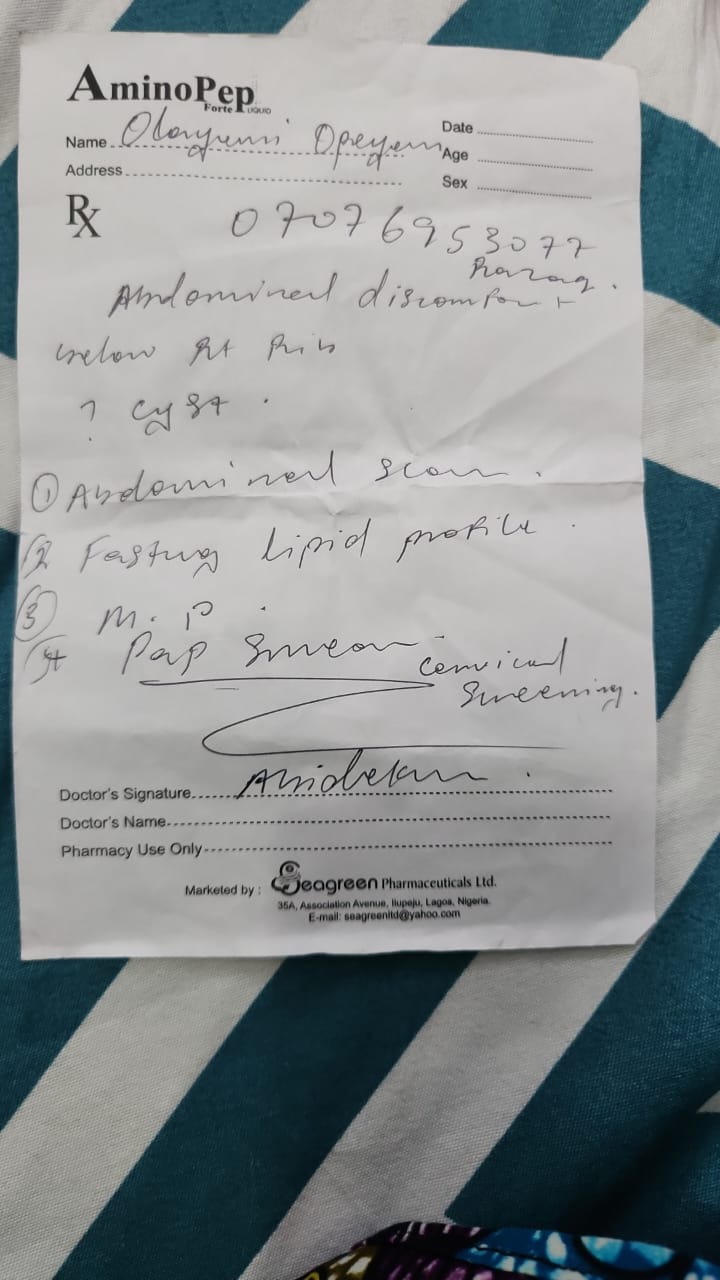 AminoPep
Forte LIQUID
Name Olayemi Opeyemi
Date
Age
Address
Sex
Rx
07076953077
Abdominal discomfort
below Rt Rib
? cyst.
① Abdominal scan.
2 Fasting lipid profile.
③ M.P.
4 Pap Smear - cervical
screening.
Doctor's Signature
Doctor's Name
Pharmacy Use Only
Marketed by : Seagreen Pharmaceuticals Ltd.
35A, Association Avenue, Ilupeju, Lagos, Nigeria.
E-mail: seagreenltd@yahoo.com